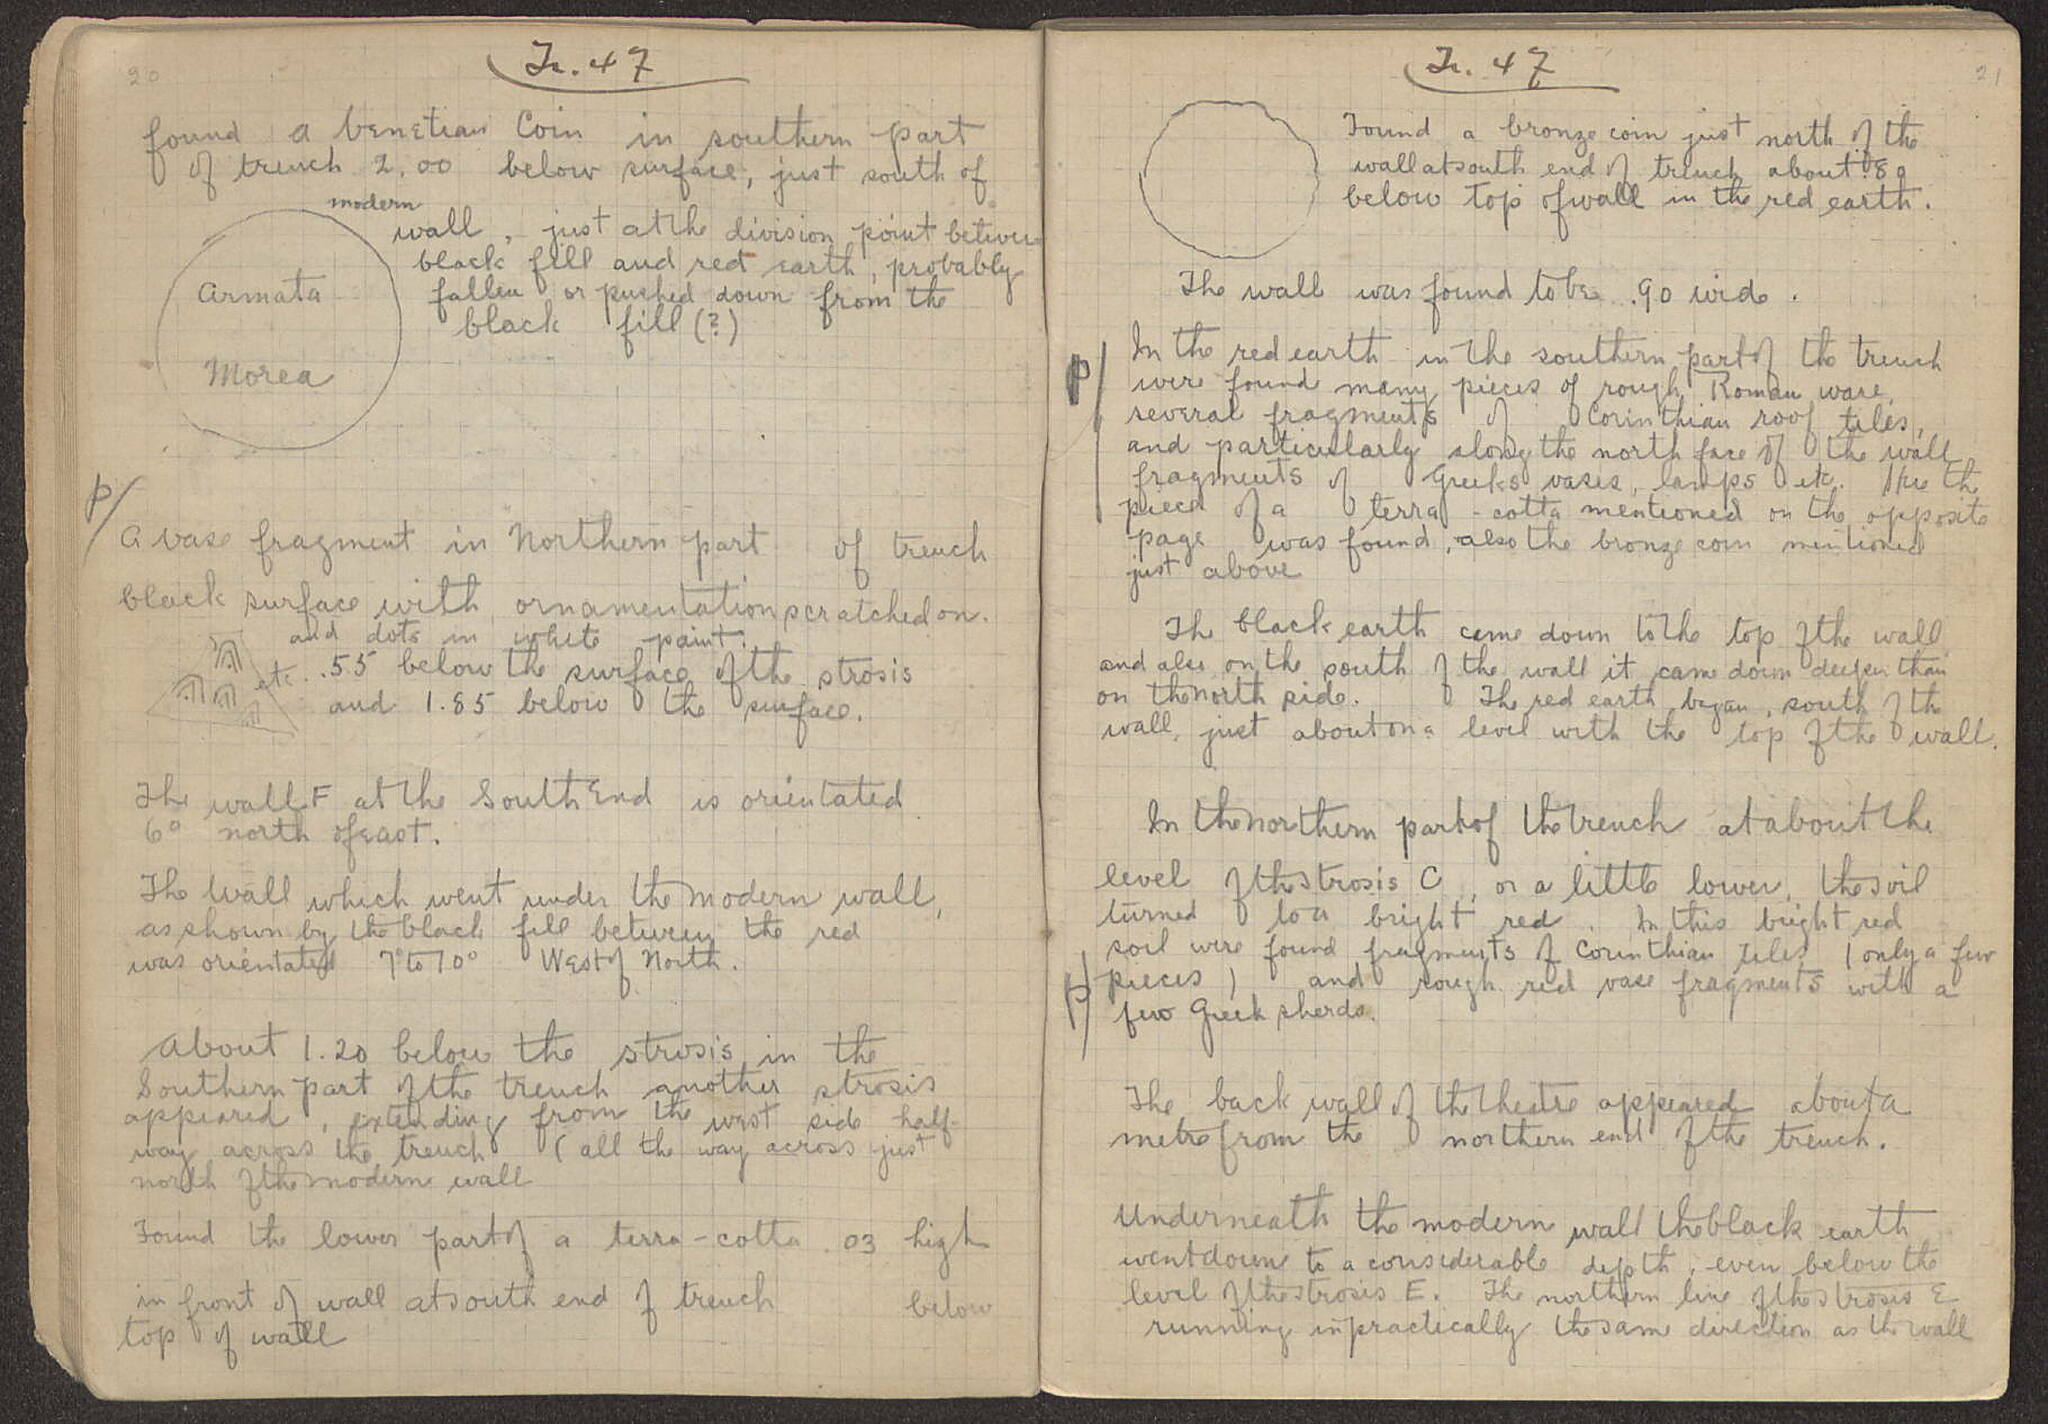 20
Tr. 47
found a Venetian Coin in southern part
of trench 2.00 below surface, just south of
modern
wall, just at the division point between
black fill and red earth, probably
fallen or pushed down from the
black fill (?)
Armata
Morea
P/
A vase fragment in Northern part of trench
black surface with ornamentation scratched on.
and dots in white paint.
etc. .55 below the surface of the strosis
and 1.85 below the surface.
The wall F at the South End is orientated
6° north of east.
The Wall which went under the modern wall,
as shown by the black fill between the red
was orientated 7° to 10° West of North.
About 1.20 below the strosis in the
Southern part of the trench another strosis
appeared, extending from the west side half-
way across the trench (all the way across just
north of the modern wall
Found the lower part of a terra-cotta .03 high
in front of wall at south end of trench below
top of wall
21
Tr. 47
Found a bronze coin just north of the
wall at south end of trench about .80
below top of wall in the red earth.
The wall was found to be .90 wide.
P/
In the red earth in the southern part of the trench
were found many pieces of rough Roman ware,
several fragments of Corinthian roof tiles,
and particularly along the north face of the wall
fragments of Greeks vases, lamps etc. Here the
piece of a terra-cotta mentioned on the opposite
page was found, also the bronze coin mentioned
just above
The black earth came down to the top of the wall
and also on the south of the wall it came down deeper than
on the north side. The red earth began, south of the
wall, just about on a level with the top of the wall.
In the northern part of the trench at about the
level of the strosis C, or a little lower, the soil
turned to a bright red. In this bright red
soil were found fragments of Corinthian tiles (only a few
P/
pieces) and rough red vase fragments with a
few Greek sherds.
The back wall of the theatre appeared about a
metre from the northern end of the trench.
Underneath the modern wall the black earth
went down to a considerable depth, even below the
level of the strosis E. The northern line of the strosis E
running in practically the same direction as the wall